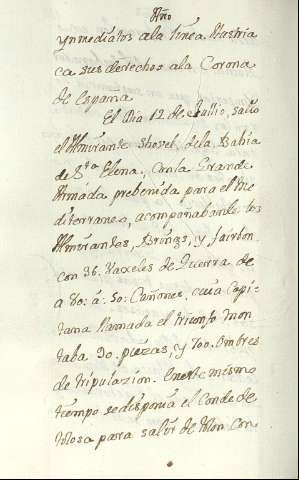 Año
Ynmediatos ala linea Austria
ca sus derechos ala Corona
de España
El Dia 12 de Jullio, salió
el Almirante Shovel, dela Bahia
de S.ta Elena, Con la Grande
Armada prebenida para el Me
diterraneo, acompañabanle los
Almirantes, Brings, y fairbon,
con 36. Vaxeles de Guerra de
a 80. á. 50. Cañones, cuia Capi=
tana llamada el triunfo mon
taba 90. piezas, y 700. Ombres
de tripulazion. En este mismo
tiempo se disponia el Conde de
tolosa para salir de tolon con